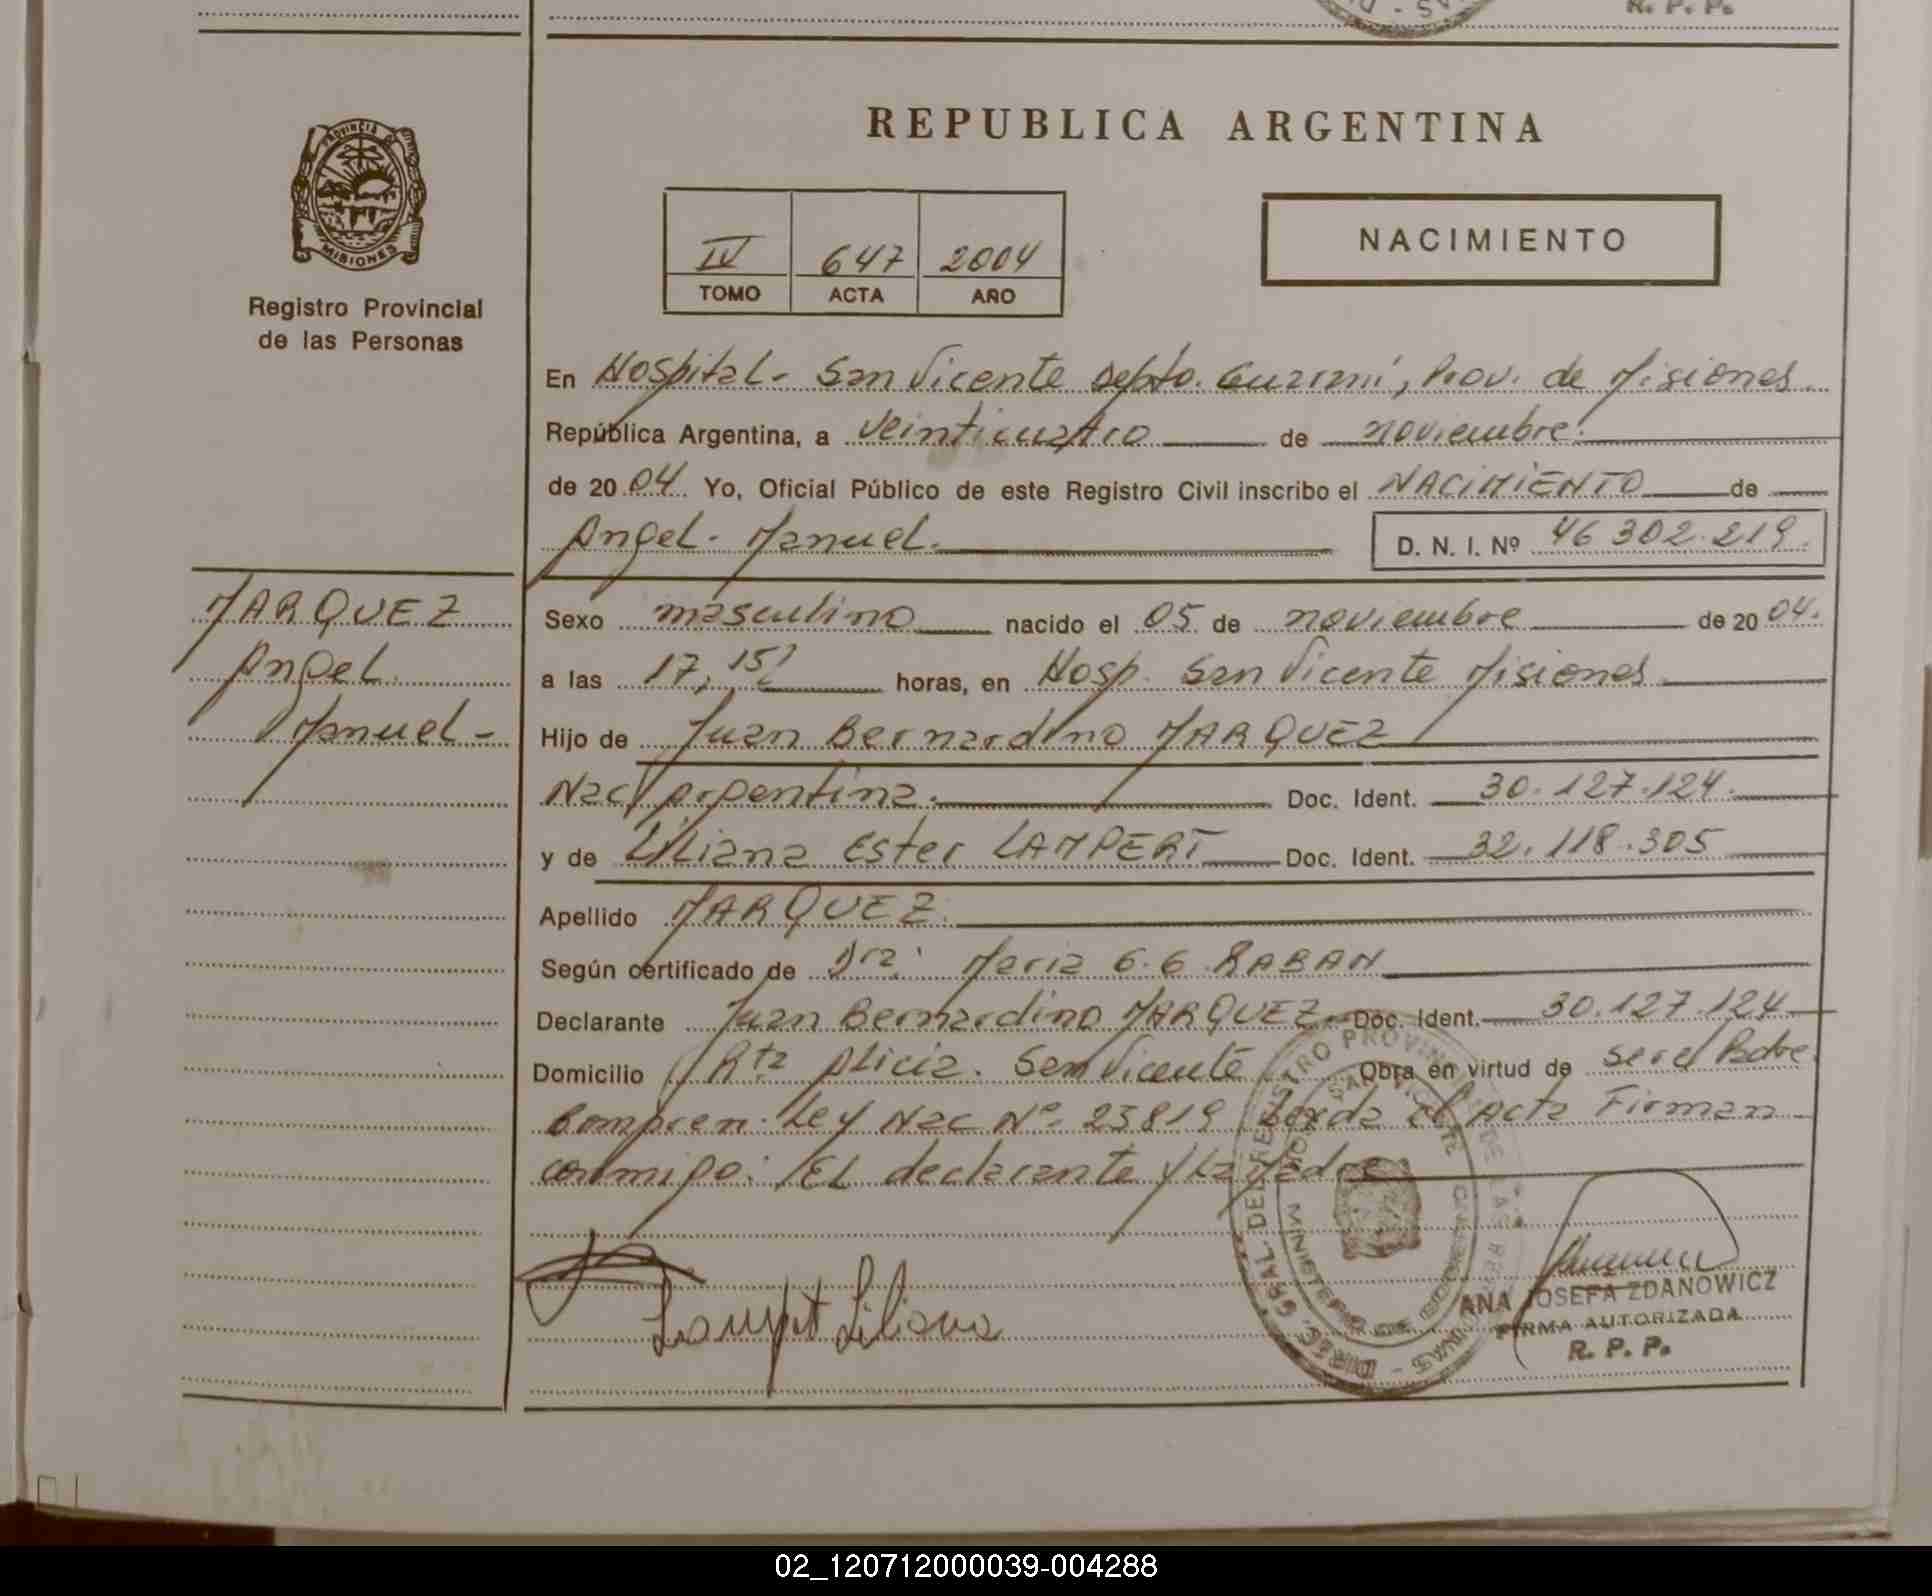 R. P. P.
PROVINCIA DE
MISIONES
Registro Provincial
de las Personas
REPUBLICA ARGENTINA
IV 647 2004
TOMO ACTA AÑO
NACIMIENTO
En Hospital - San Vicente Depto. Guaraní, Prov. de Misiones.
República Argentina, a veinticuatro de noviembre.
de 2004. Yo, Oficial Público de este Registro Civil inscribo el NACIMIENTO de
Angel - Manuel. D. N. I. Nº 46 302.219.
MARQUEZ
Angel
Manuel -
Sexo masculino nacido el 05 de noviembre de 2004.
a las 17,15 horas, en Hosp. San Vicente Misiones
Hijo de Juan Bernardino MARQUEZ
Nac/ Argentina. Doc. Ident. 30.127.124.
y de Liliana Ester LAMPERT Doc. Ident. 32.118.305
Apellido MARQUEZ.
Según certificado de Dra. Maria G. G. RABAN
Declarante Juan Bernardino MARQUEZ Doc. Ident. 30.127.124
Domicilio Rta Alicia. San Vicente Obra en virtud de ser el Padre
Compren. Ley Nac Nº 23819 el Acta Firman
conmigo: EL declarante y La Madre
Lampert Liliana
DIREC. GRAL. DEL REGISTRO PROVINCIAL DE LAS PERSONAS
SAN VICENTE
MISIONES
MINISTERIO DE GOBIERNO
ANA JOSEFA ZDANOWICZ
FIRMA AUTORIZADA
R. P. P.
02_120712000039-004288